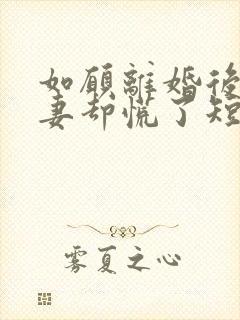 如愿離婚後
妻却慌了短
雾夏之心